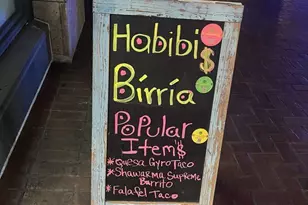 Habibi$
Birria
Popular
Item$
*Quesa GyroTaco
*Shawarma Supreme
Barrito
*Falafel Taco